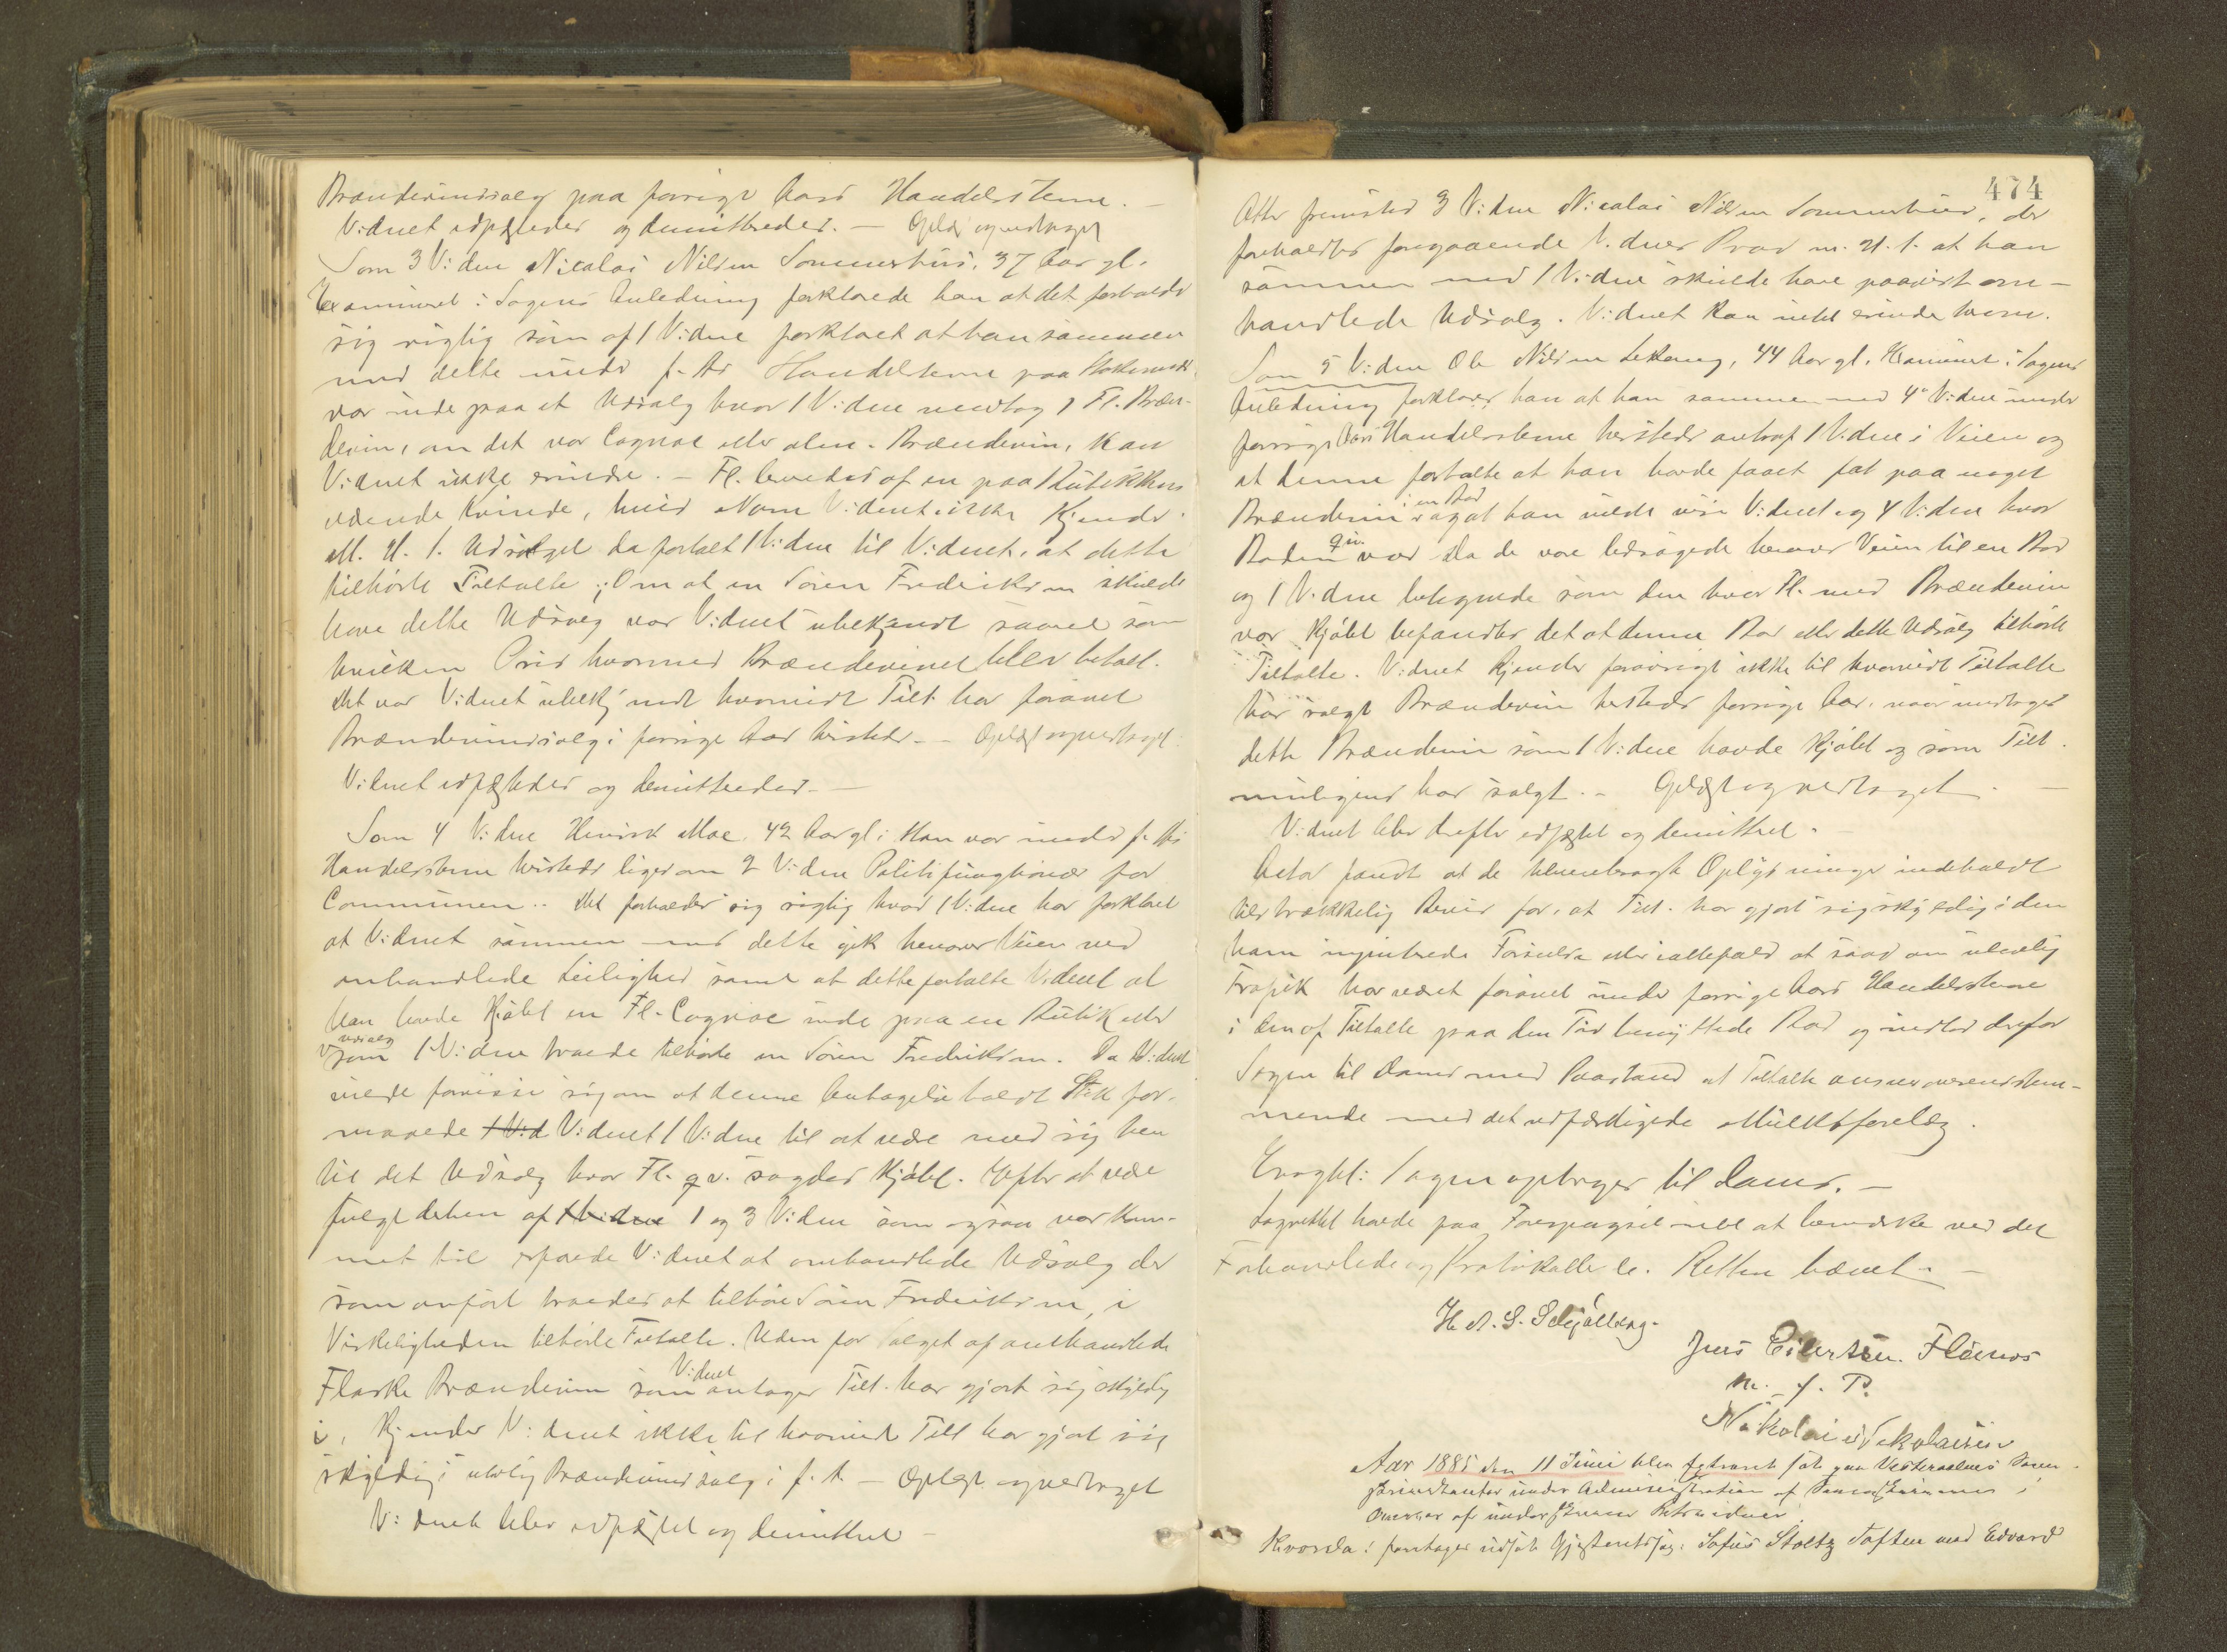 Brændevinssalg paa forrige Aars Handelstevne. —
Vidnet edfæstedes og demitteredes. — Oplæst og vedtaget
Som 3 Vidne Nicolai Nilsen Sommerhus, 37 Aar gl.
Examineret i Sagens Anledning forklarede han at det forholdt
sig rigtig som af 1 Vidne forklaret at han sammen
med dette under f. Aars Handelstevne paa Stokmarkn.
var inde paa et Udsalg hvor 1 Vidne modtog 1 Fl. Bræn-
devin, om det var Cognac eller alm. Brændevin, kan
Vidnet ikke erindre. — Fl. leveredes af en paa Butikken
værende Kvinde, hvis Navn Vidnet ikke kjendte.
M. H. t. Udsalget da fortalt 1 Vidne til Vidnet, at dette
tilhørte Tiltalte; Om at en Søren Fredriksen skulde
have dette Udsalg var Vidnet ubekjendt saavel som
hvilken Pris hvormed Brændevinet blev betalt.
Det var Vidnet ubekjendt hvorvidt Tilt. har forøvet
Brændevinssalg i forrige Aar hersteds. — Oplæst og vedtaget
Vidnet edfæstedes og demitteredes. —
Som 4 Vidne Henrik Moe, 42 Aar gl. Han var under f. Aars
Handelstevne hersteds ligesom 2 Vidne Politifungtionær for
Communen. Det forholder sig rigtig hvad 1 Vidne har forklaret
at Vidnet sammen med dette gik henover Veien ved
omhandlede Leilighed samt at dette fortalte Vidnet at
han havde kjøbt en Fl. Cognac inde paa en Butik eller
Udsalg
som 1 Vidne troede tilhørte en Søren Fredriksen. Da Vidnet
vilde forvisse sig om at denne Antagelse holdt Stik for-
maaede 1 Vid Vidnet 1 Vidne til at være med sig hen
til det Udsalg hvor Fl. qv. sagdes kjøbt. Efter at være
fulgt dithen af 1 Vidne 1 og 3 Vidne som ogsaa var kom-
met til erfarede Vidnet at omhandlede Udsalg der
som anført troedes at tilhøre Søren Fredriksen, i
Virkeligheden tilhørte Tiltalte. Uden for Salget af omhandlede
Vidnet
Flaske Brændevin som antager Tilt. har gjort sig skyldig
i, kjender Vidnet ikke til hvorvidt Tilt har gjort sig
skyldig i ulovlig Brændevinssalg i f. A. — Oplæst og vedtaget
Vidnet blev edfæstet og demitteret —
474
Atter fremsted 3 Vidne Nicolai Nilsen Sommerhus, der
foreholdtes foregaaende Vidnes Prov m. H. t. at han
sammen med 1 Vidne skulde have paavist om-
handlede Udsalg. Vidnet kan intet erindre herom.
Som 5 Vidne Ole Nilsen Lekang, 44 Aar gl. Examineret i Sagens
Anledning forklarer han at han sammen med 4de Vidne under
forrige Aars Handelstevne hersteds antraf 1 Vidne i Veien og
at denne fortalte at han havde faaet fat paa noget
i en Bod
Brændevin og at han vilde vise Vidnet og 4 Vidne hvor
Boden qv. var Da de vare ledsagede henover Veien til en Bod
og 1 Vidne betegnede som den hvor Fl. med Brændevin
var kjøbt befandtes det at denne Bod eller dette Udsalg tilhørte
Tiltalte. Vidnet kjender forøvrigt ikke til hvorvidt Tiltalte
har solgt Brændevin hersteds forrige Aar, naar undtages
dette Brændevin som 1 Vidne havde kjøbt og som Tilt.
muligens har solgt. — Oplæst og vedtaget. —
Vidnet blev derefter edfæstet og demitteret.
Actor fandt at de tilveiebragte Oplysninger indeholdt
tilstrækkelig Bevis for, at Tilt. har gjort sig skyldig i den
ham imputerede Forseelse eller ialtefald at saadan ulovlig
Trafik har været forøvet under forrige Aars Handelstevne
i den af Tiltalte paa den Tid benyttede Bod og indlod derfor
Sagen til Doms med Paastand at Tiltalte ansees overensstem-
mende med det udfærdigede Mulktforelæg.
Eragtet: Sagen optages til Doms. —
Lagrettet havde paa Forespørgsel intet at bemærke ved det
Forhandlede og Protokollerede. Retten hævet. —
H. A. S. Schjølberg.
Jens Eilertsen Flaenæs
m. f. P.
Nikolai Nikolaisen
Aar 1885 den 11 Juni blev Extraret sat paa Vesteraalens Soren-
skriverkontor under Administration af
Overvær af undertegnede Retsvidner
Hvorda: foretages udsat Gjæsteretssag: Sofus Stoltz Toften mod Edvard